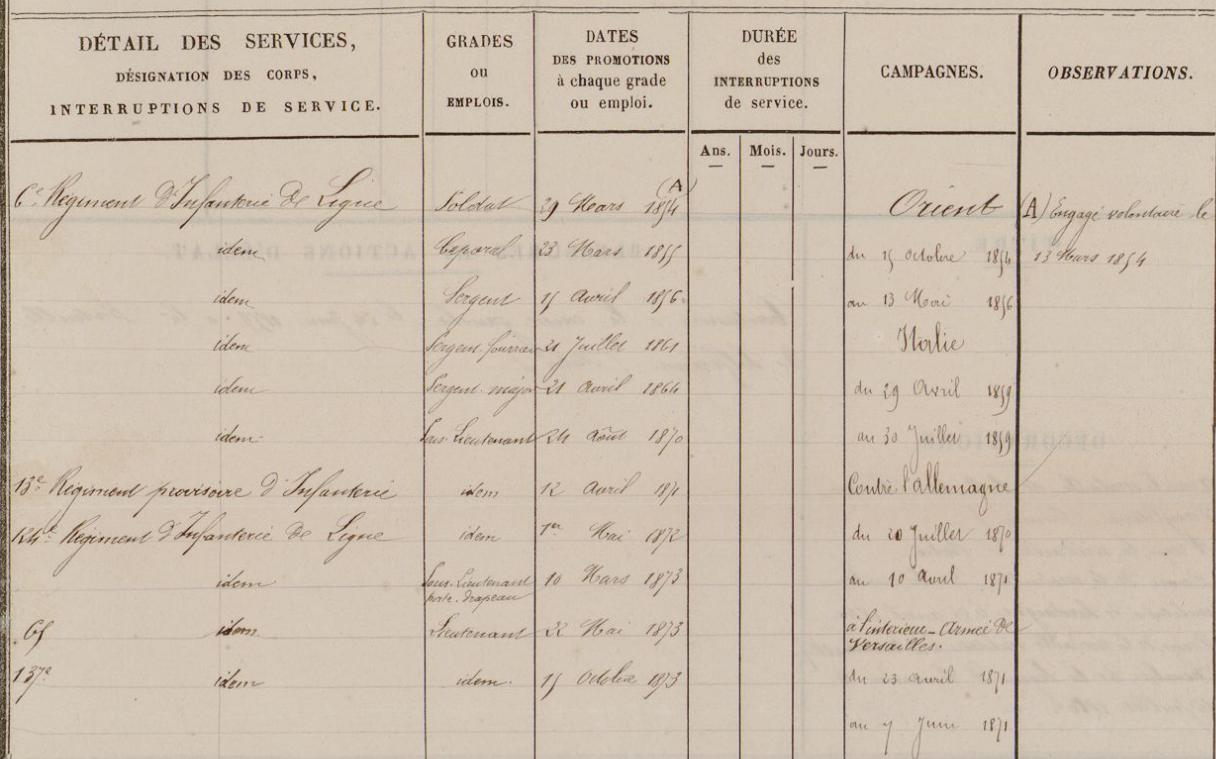 DÉTAIL DES SERVICES,
DÉSIGNATION DES CORPS,
INTERRUPTIONS DE SERVICE.
GRADES
ou
EMPLOIS.
DATES
DES PROMOTIONS
à chaque grade
ou emploi.
DURÉE
des
INTERRUPTIONS
de service.
Ans. Mois. Jours.
CAMPAGNES.
OBSERVATIONS.
6e Régiment d'Infanterie de Ligne Soldat 29 Mars 1854 (A)
idem Caporal 23 Mars 1855
idem Sergent 15 Avril 1856
idem Sergent fourrier 21 Juillet 1861
idem Sergent major 21 Avril 1864
idem Sous-Lieutenant 24 Août 1870
13e Régiment provisoire d'Infanterie idem 12 Avril 1871
124e Régiment d'Infanterie de Ligne idem 1er Mai 1872
idem Sous-Lieutenant 10 Mars 1873
porte-drapeau
65 idem Lieutenant 22 Mai 1873
137e idem idem. 15 Octobre 1873
Orient
du 15 Octobre 1854
au 13 Mai 1856
Italie
du 29 Avril 1859
au 30 Juillet 1859
Contre l'allemagne
du 20 Juillet 1870
au 10 Avril 1871
à l'intérieur - Armée de
Versailles.
du 23 avril 1871
au 7 Juin 1871
(A) Engagé volontaire le
13 Mars 1854